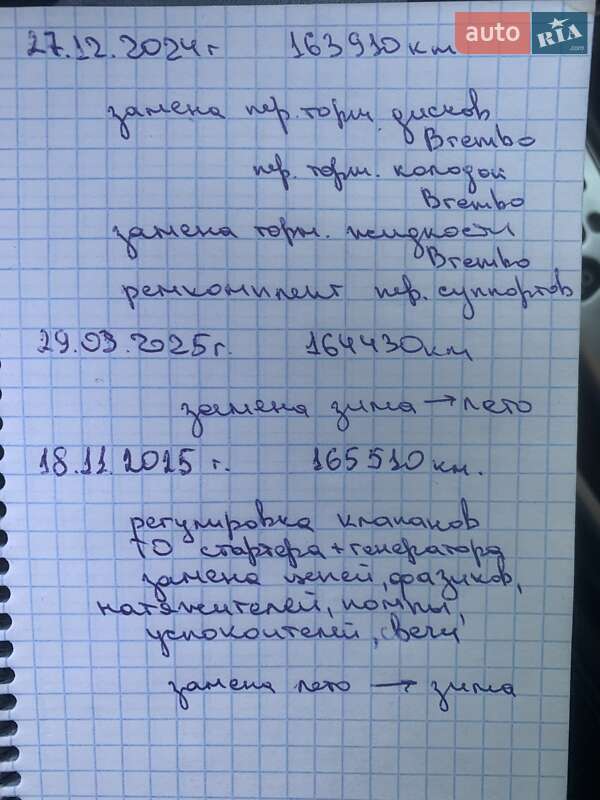 auto RIA.com
27.12.2024г 163910км
замена пер. торм. дисков
Brembo
пер. торм. колодок
Brembo
замена торм. жидкости
Brembo
ремкомплект пер. суппортов
29.03.2025г. 164430км
замена зима → лето
18.11.2025 г. 165510км.
регулировка клапанов
ТО стартера + генератора
замена цепей, фазиков,
натяжителей, помпы,
успокоителей, свечи
замена лето → зима